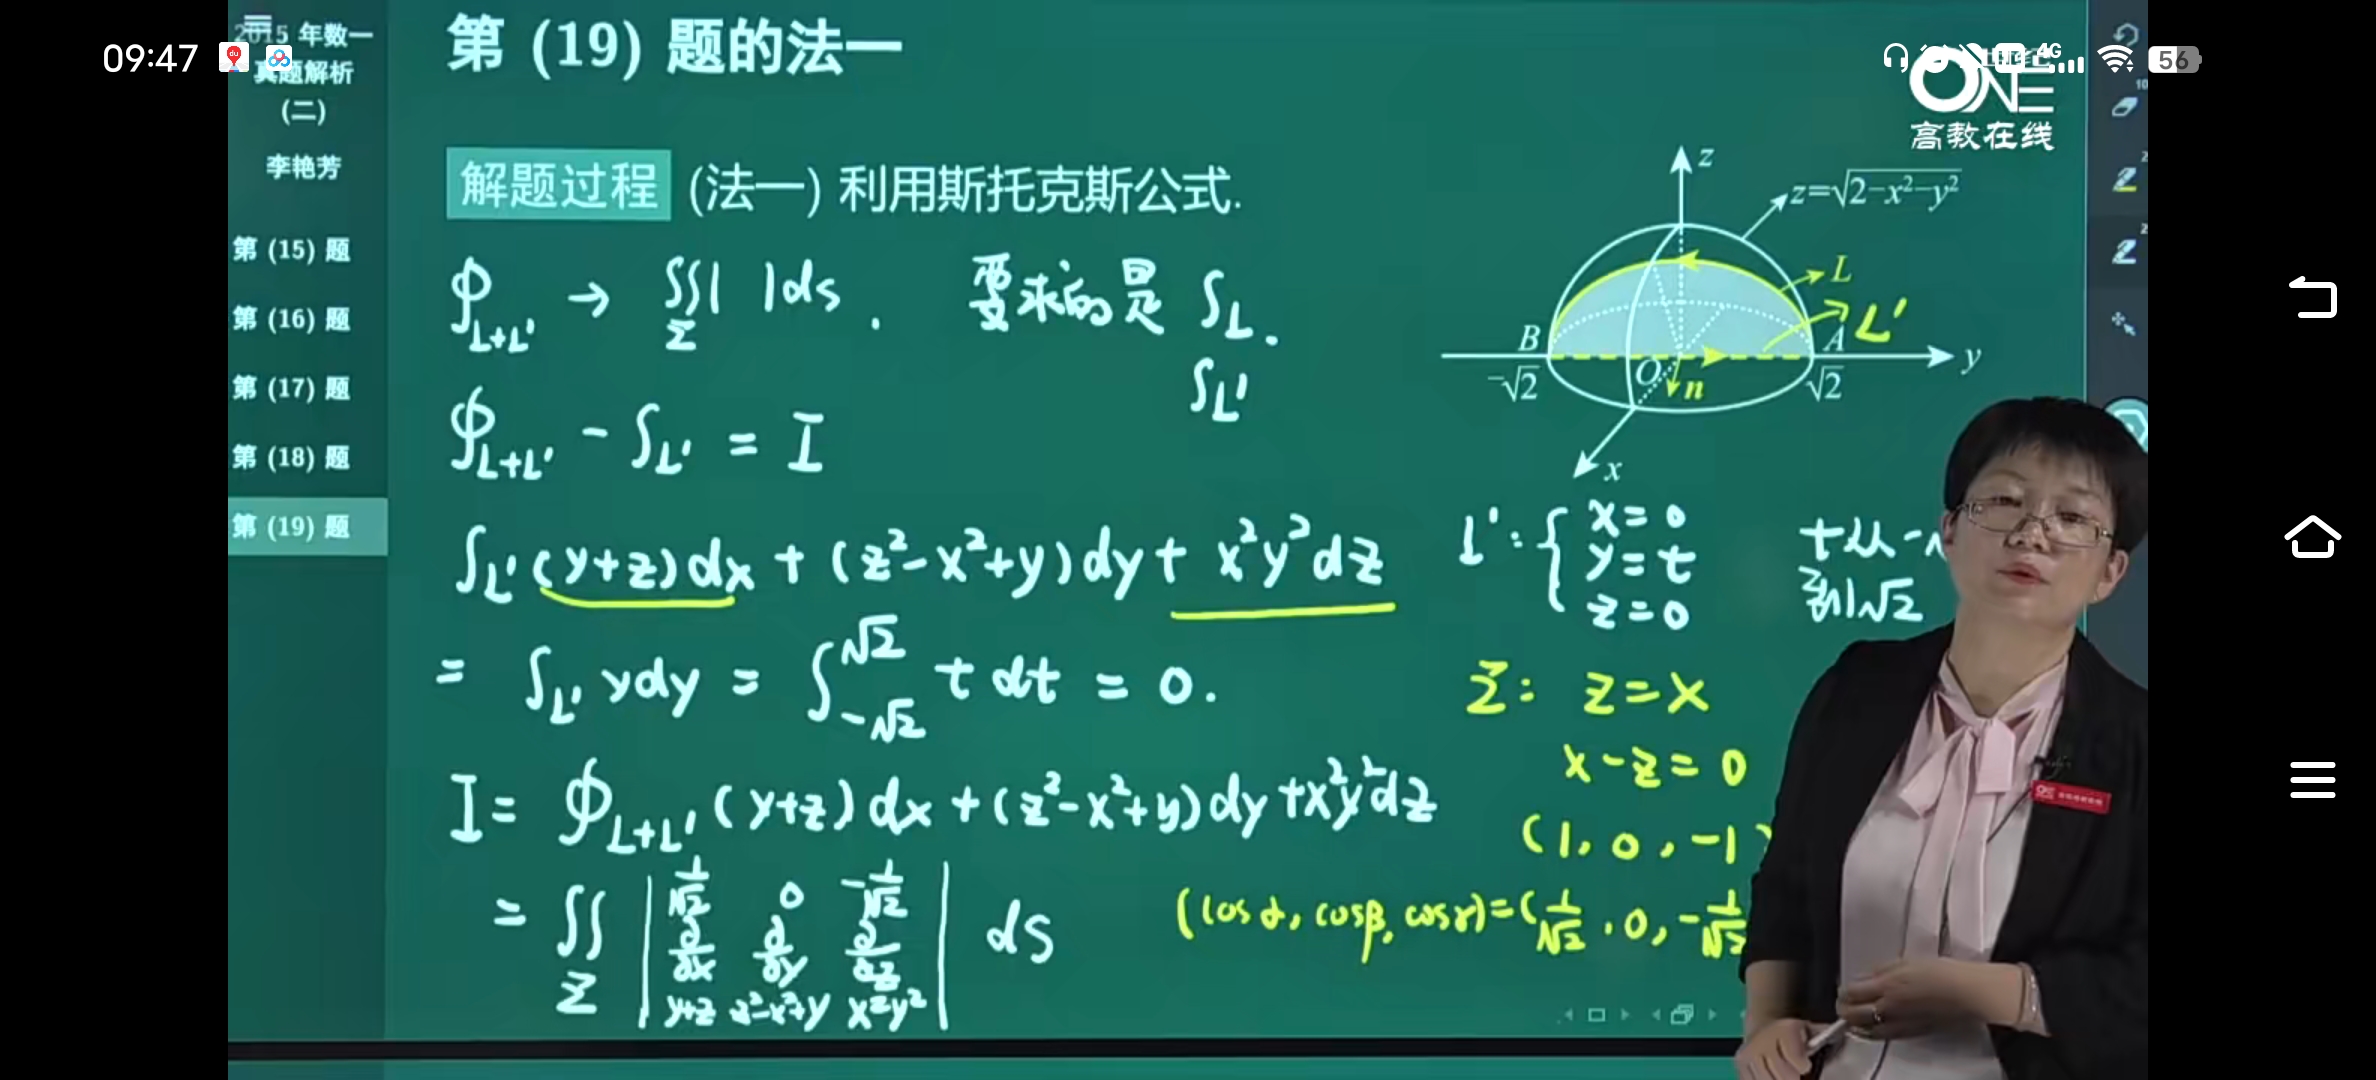 09:47
4G
56
2015 年数一
真题解析
(二)
李艳芳
第 (15) 题
第 (16) 题
第 (17) 题
第 (18) 题
第 (19) 题
第 (19) 题的法一
ONE
高教在线
解题过程 (法一) 利用斯托克斯公式.
∮_{L+L'} → ∬_Σ | | ds . 要求的是 ∫_L .
∫_{L'}
∮_{L+L'} - ∫_{L'} = I
∫_{L'} (y+z)dx + (z²-x²+y)dy + x²y²dz
= ∫_{L'} ydy = ∫_{-√2}^{√2} t dt = 0.
I = ∮_{L+L'} (y+z)dx + (z²-x²+y)dy + x²y²dz
= ∬_Σ | 1/√2 0 -1/√2 | ds
∂/∂x ∂/∂y ∂/∂z
y+z z²-x²+y x²y²
z
z=√2-x²-y²
L
L'
B
A
y
-√2
O
n
√2
x
L': { x=0
y=t
z=0
t从-
到√2
Σ: z=x
x-z=0
(1, 0, -1)
(cosα, cosβ, cosγ)=(1/√2, 0, -1/√2